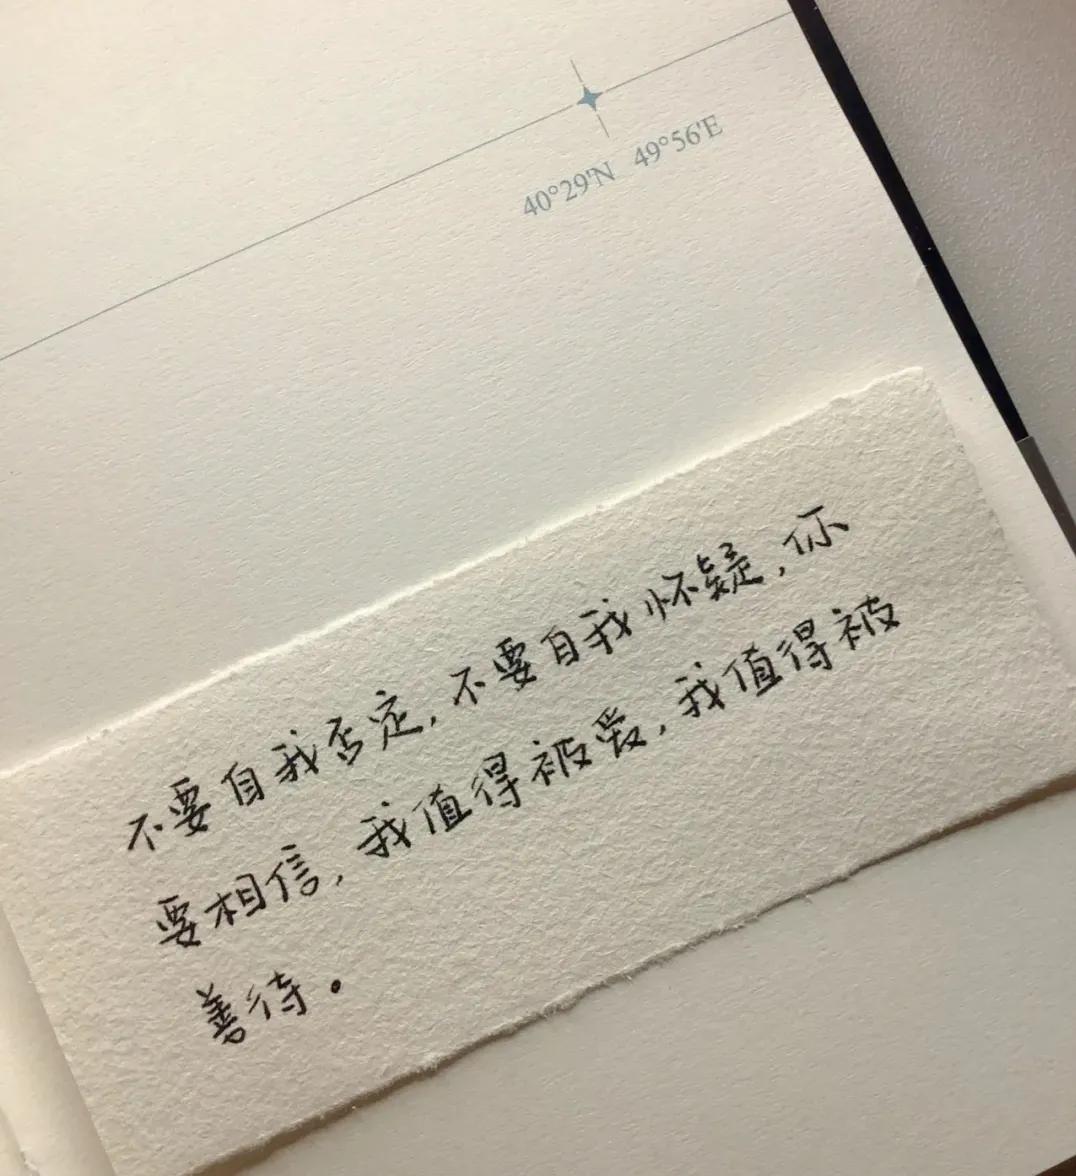 40°29'N 49°56'E
不要自我否定,不要自我怀疑,你
要相信,我值得被爱,我值得被
善待。